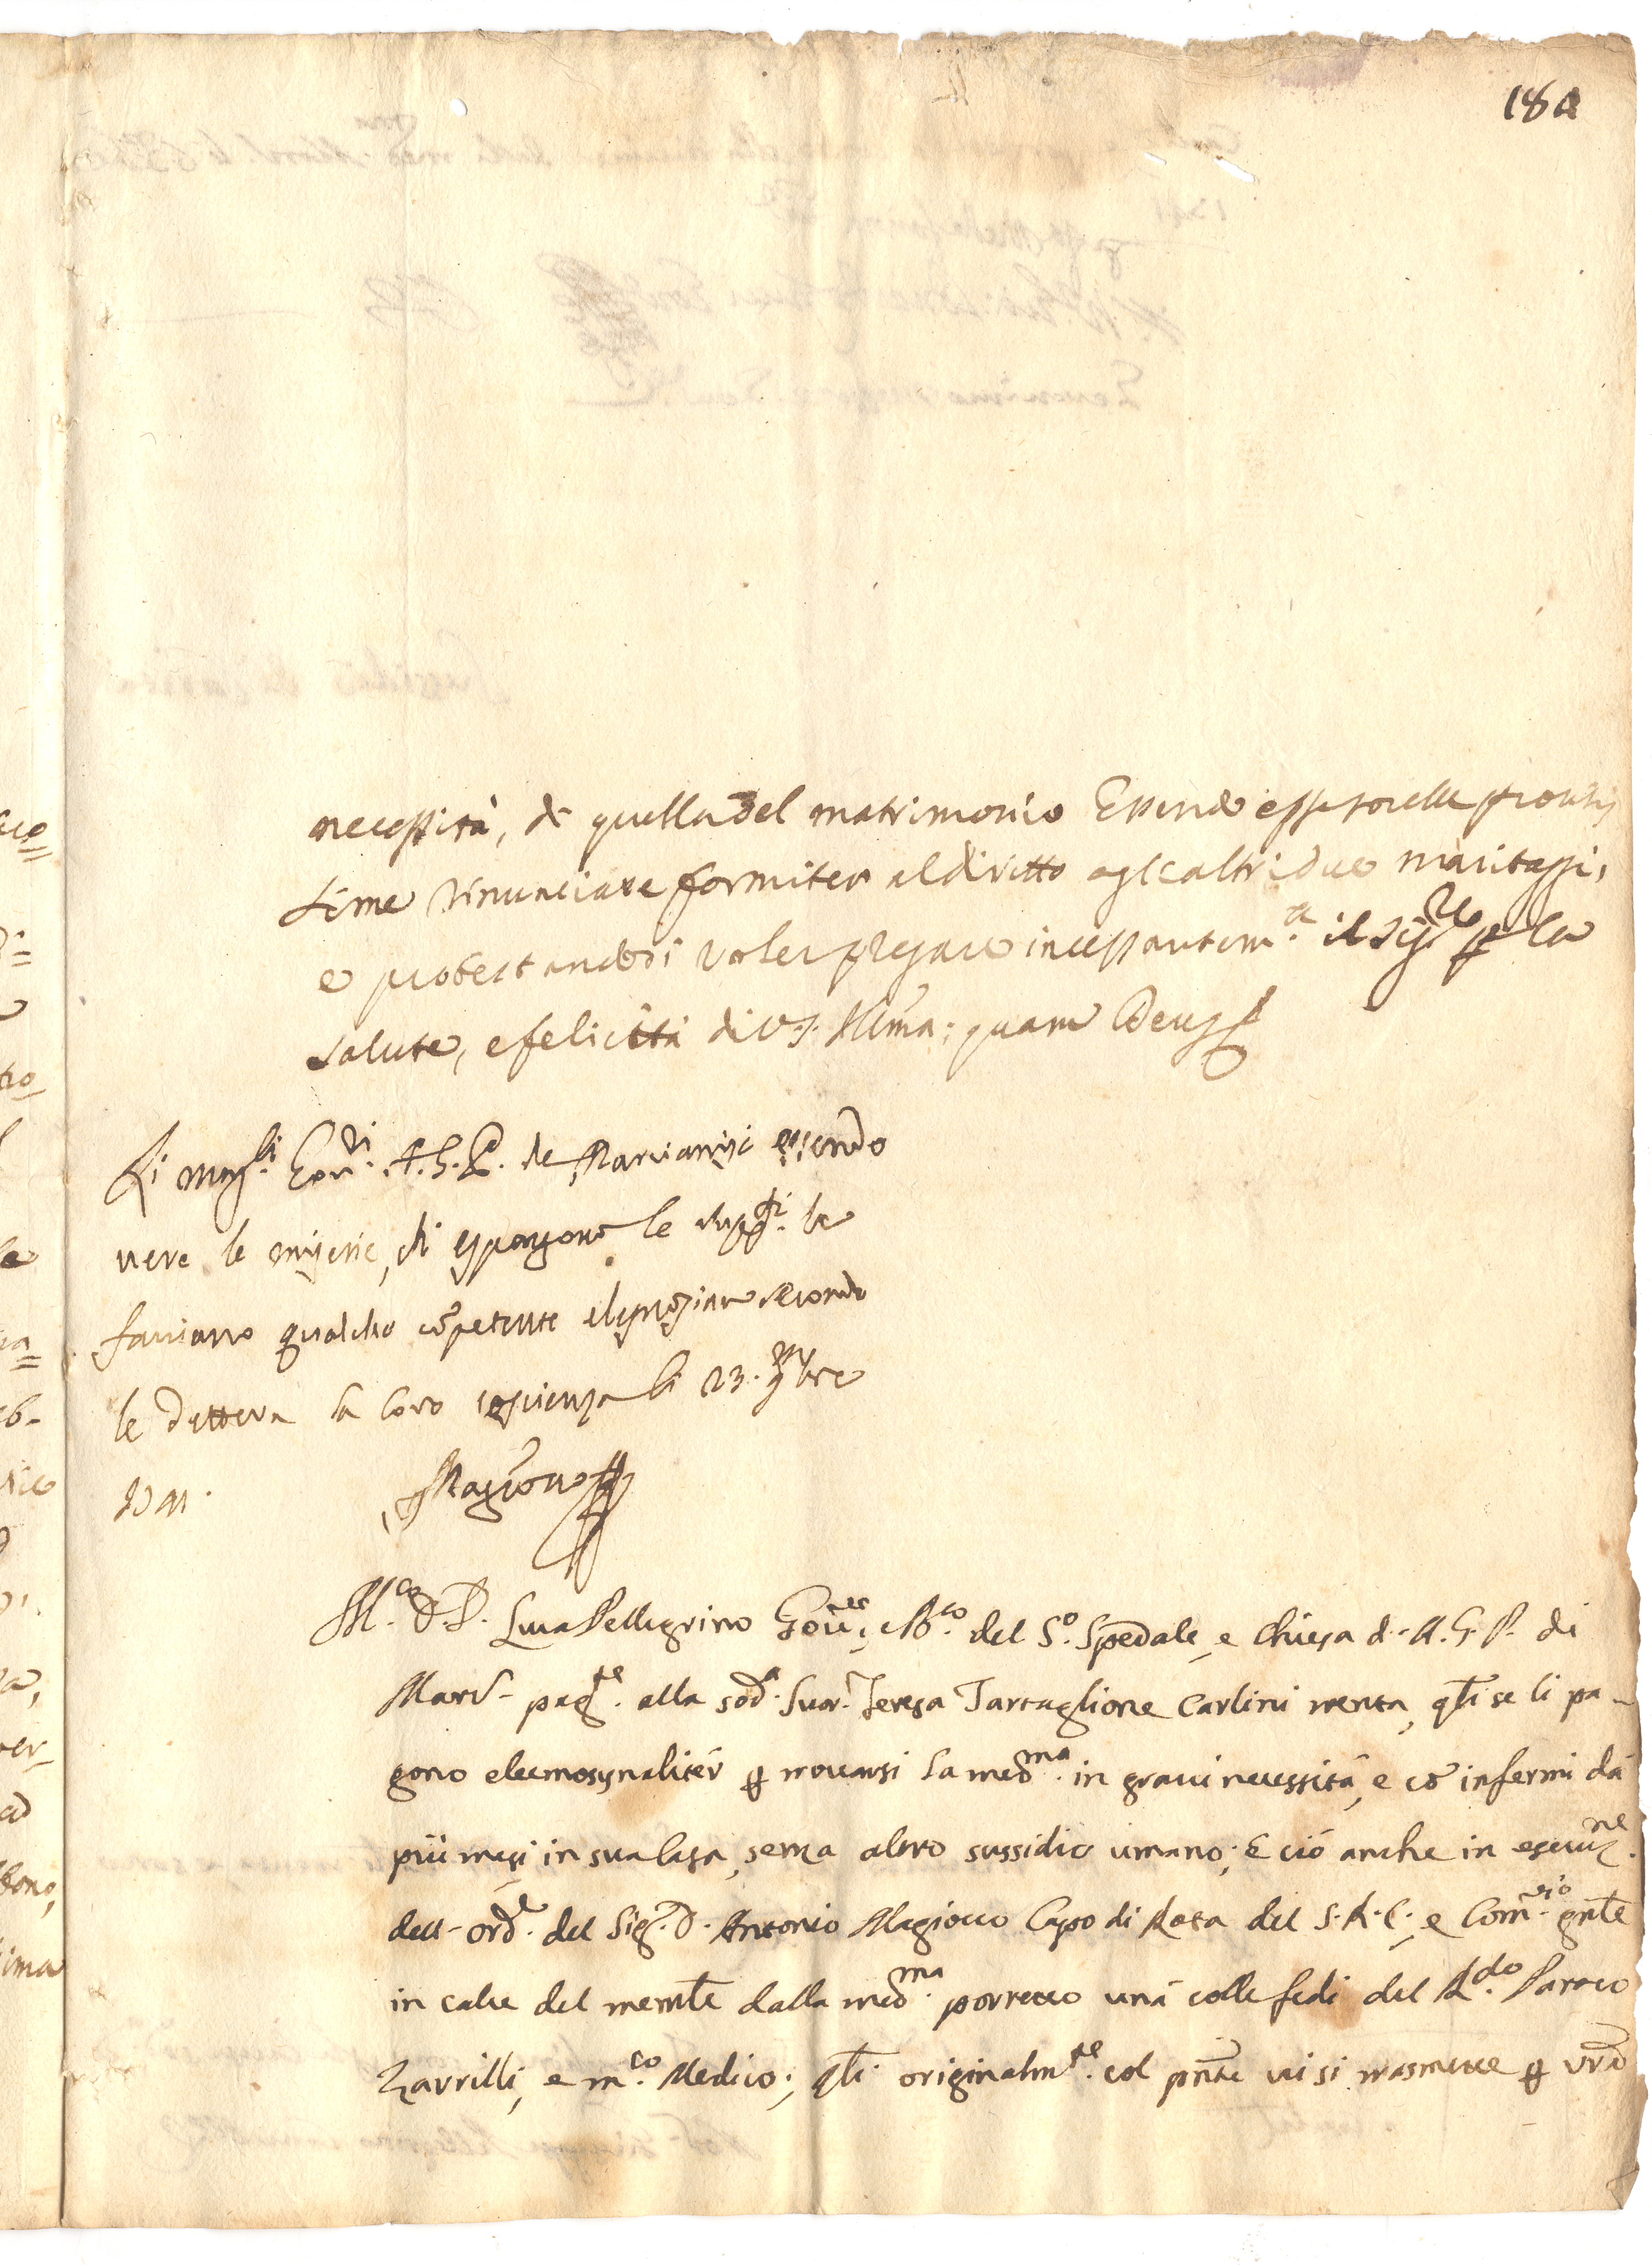 184
necessità, di quella del matrimonio Essendo esse sorelle prontis
sime rinunciare formiter al diritto agli altri due maritaggi,
e protestandosi voler pregare incessantem.te il Sig.re per la
salute, e felicità di V.S. Ill̃ma; quam Deus
Li mag.ci Gov.ri A.G.P. de Marcianisi essendo
vere le miserie, che espongono le supp.ti le
facciano qualche cõpetente elemosina secondo
le dettera la loro coscienza li 23. 9bre
Magiocco
M.co D.r Luca Pellegrino Gov.re, e B.co del S.o Spedale, e Chiesa d. A.G.P. di
Marc. pag.te alla sod.a Suor Teresa Tartaglione Carlini trenta, q̃ti se li pa-
gono eleemosynalitèr per trovarsi la med.ma in gravi necessità, e cõ infermi dà
più mesi in sua Casa, senza altro sussidio umano; E ciò anche in esecuz.ne
dell'ord.e del Sig. D. Antonio Magiocco Capo di Rota del S.R.C., e Com.rio
in calce del mem̃le dalla med.ma porretto unà colle fedi del R.do Paroco
Zarrilli, e m.co Medico; q̃ti originalm.te col p̃nte vi si trasmette per